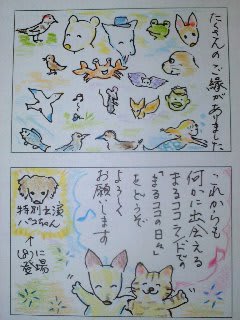 たくさんのご縁がありました
これからも
何かに出会える
まるココランドでの
「まるココの日々」
をどうぞ
よろしく
お願いします
特別出演
パコちゃん
に
登場